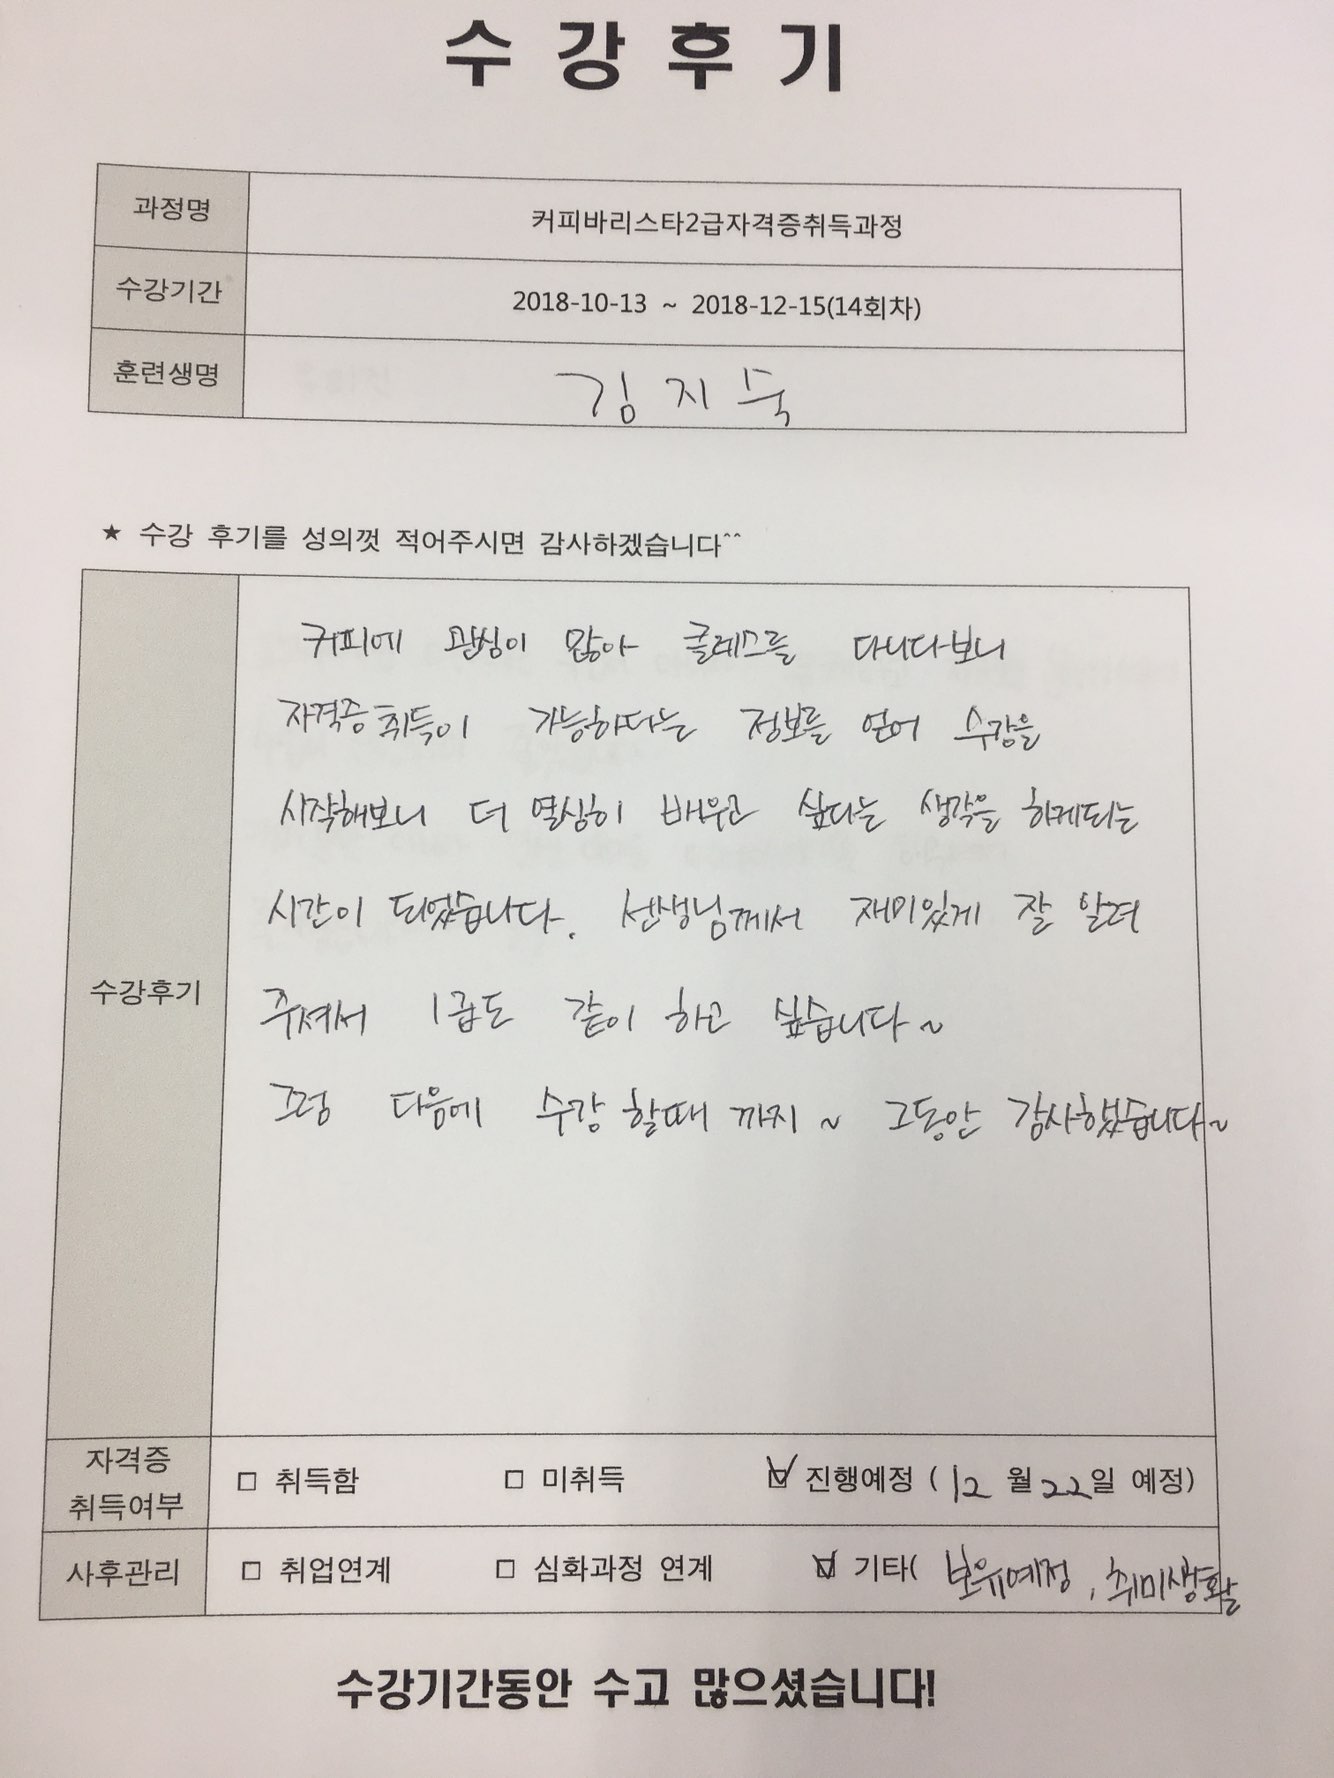 수강후기
과정명 커피바리스타2급자격증취득과정
수강기간 2018-10-13 ~ 2018-12-15(14회차)
훈련생명 김지숙
★ 수강 후기를 성의껏 적어주시면 감사하겠습니다^^
커피에 관심이 많아 클레스를 다니다보니
자격증취득이 가능하다는 정보를 얻어 수강을
시작해보니 더 열심히 배우고 싶다는 생각을 하게되는
시간이 되었습니다. 선생님께서 재미있게 잘 알려
수강후기
주셔서 1급도 같이 하고 싶습니다~
그럼 다음에 수강 할때 까지~ 그동안 감사했습니다~
자격증
취득여부 □ 취득함 □ 미취득 ☑ 진행예정 ( 12 월 22일 예정)
사후관리 □ 취업연계 □ 심화과정 연계 ☑ 기타( 보유예정, 취미생활
수강기간동안 수고 많으셨습니다!